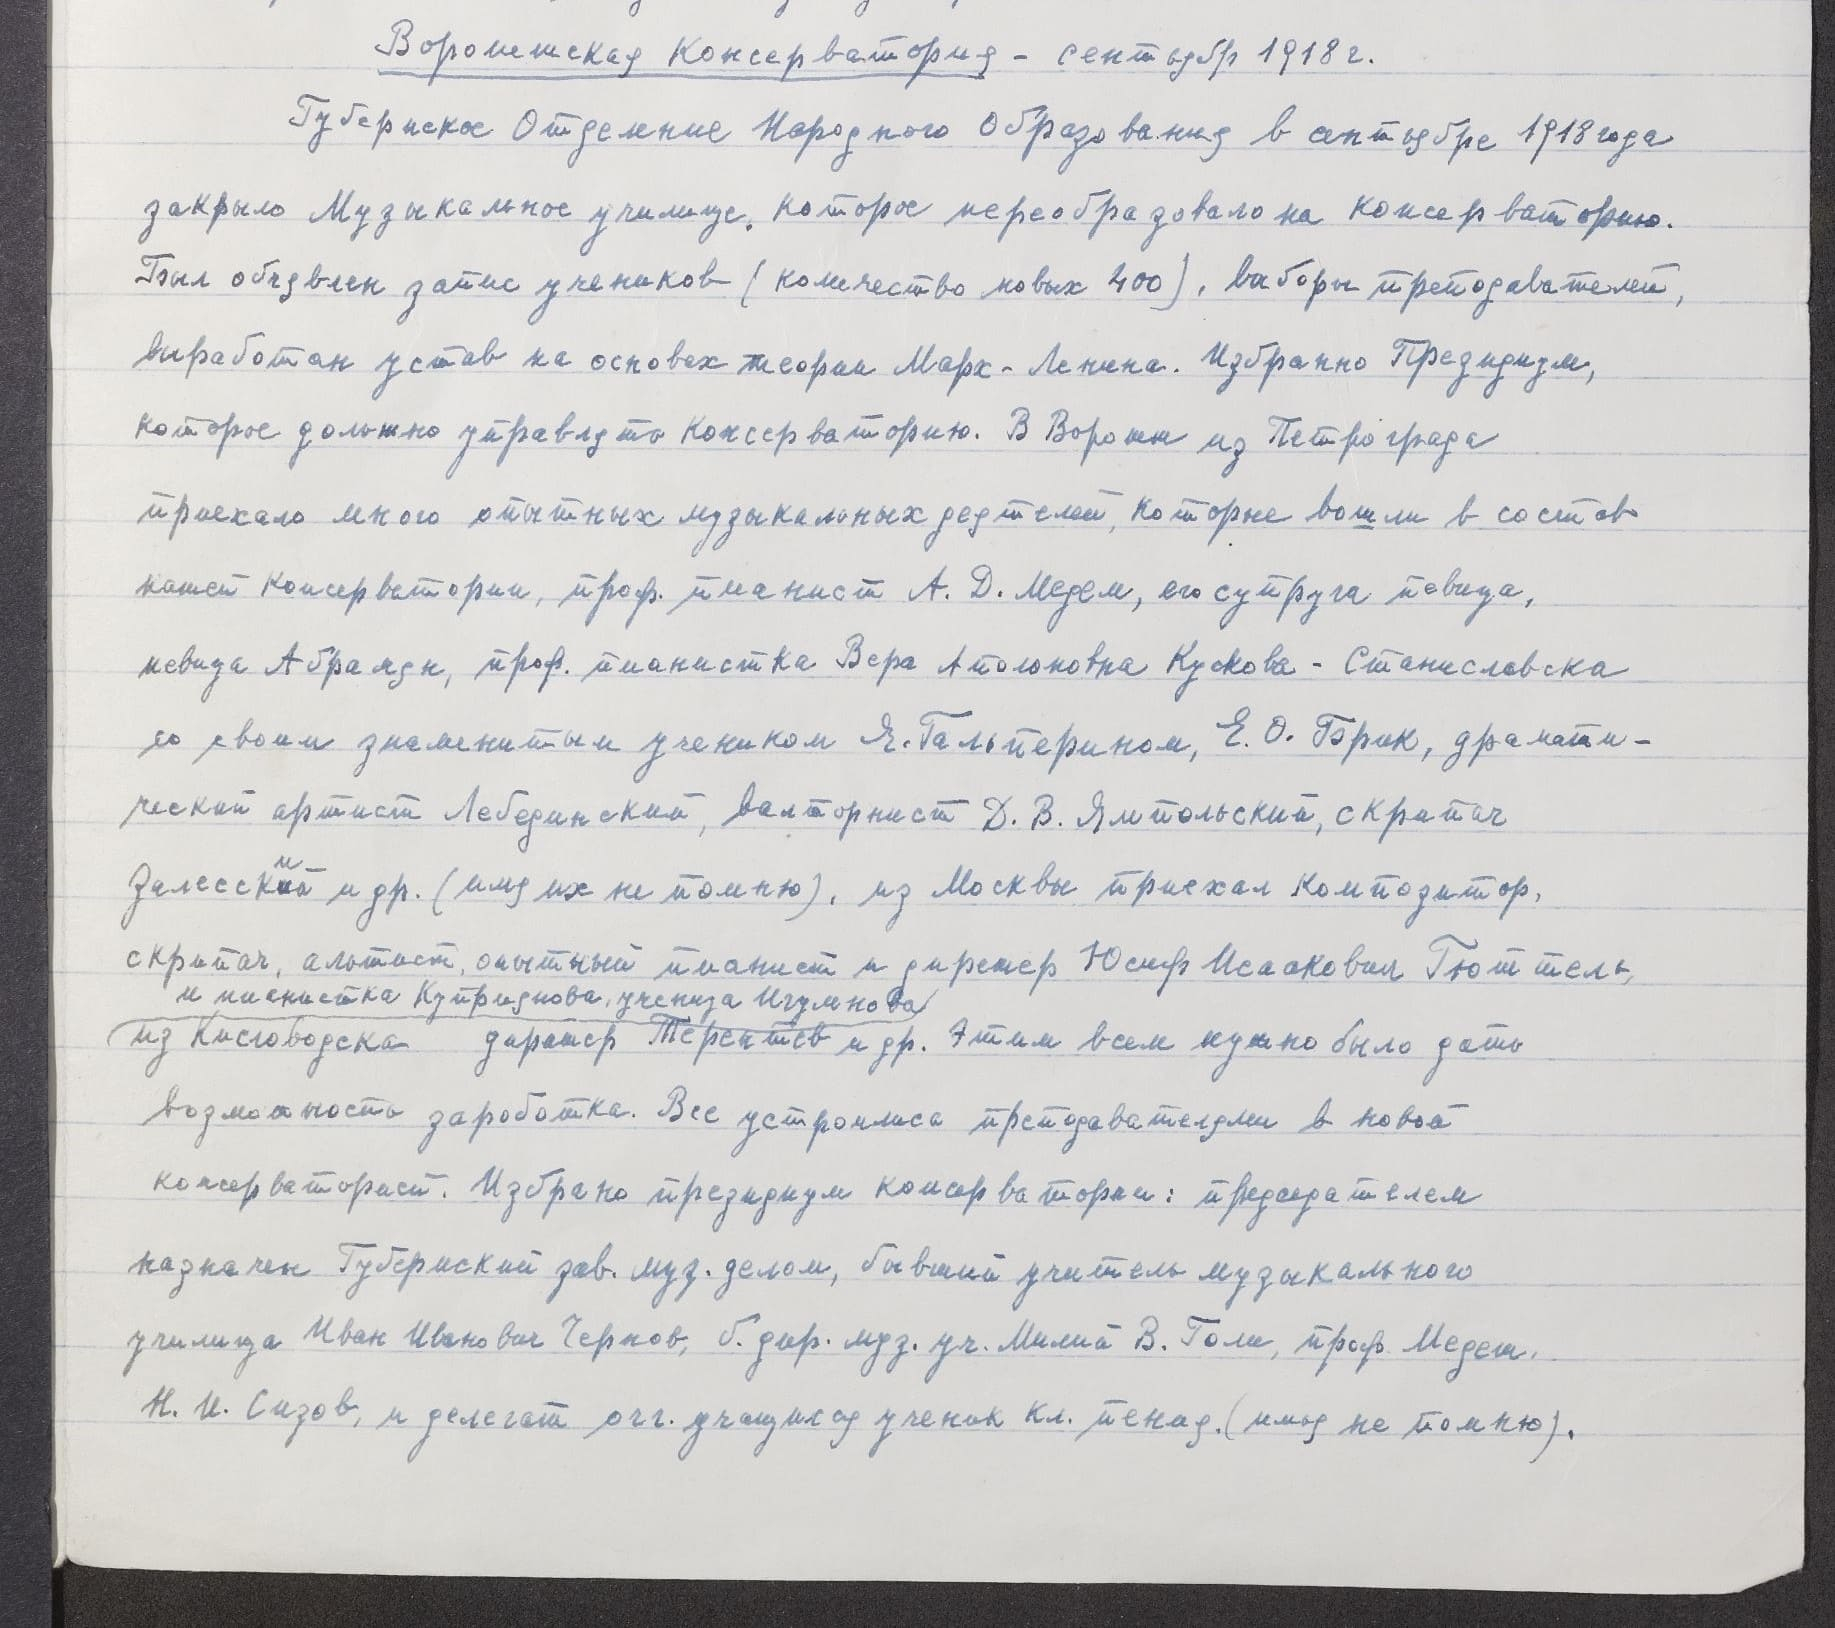 Воронежская Консерватория - сентябр 1918 г.
Губернское Отделение Народного Образования в сентябре 1918 года
закрыло Музыкальное училище, которое переобразовало на консерваторию.
Был объявлен запис учеников (количество новых 400), выборы преподавателей,
выработан устав на основах теории Маркс-Ленина. Избранно Президиум,
которое должно управлять Консерваторию. В Ворожеж из Петрограда
приехало много опытных музыкальных деятелей, которые вошли в состав
нашей Консерватории, проф. пианист А. Д. Медем, его супруга певица,
певица Абрамян, проф. пианистка Вера Аполоновна Кускова - Станиславска
со своим знаменитым учеником Я. Гальперином, Е. О. Брик, драмати-
ческий артист Лебединский, валторнист Д. В. Ямпольский, скрипач
Залесский и др. (имя их не помню), из Москвы приехал композитор,
скрипач, альтист, опытный пианист и дирижер Юсиф Исаакович Гюттель,
и пианистка Куприянова, ученица Игумнова
из Кисловодска дирижер Терентев и др. Этим всем нужно было дать
возможность заработка. Все устроились преподавателями в новой
консерваторией. Избрано президиум консерватории: председателем
назначен Губернский зав. муз. делом, бывший учитель музыкального
училища Иван Иванович Чернов, б. дир. муз. уч. Милий В. Голи, проф. Медем,
Н. И. Сизов, и делегат учащихся ученик кл. пения. (имя не помню).